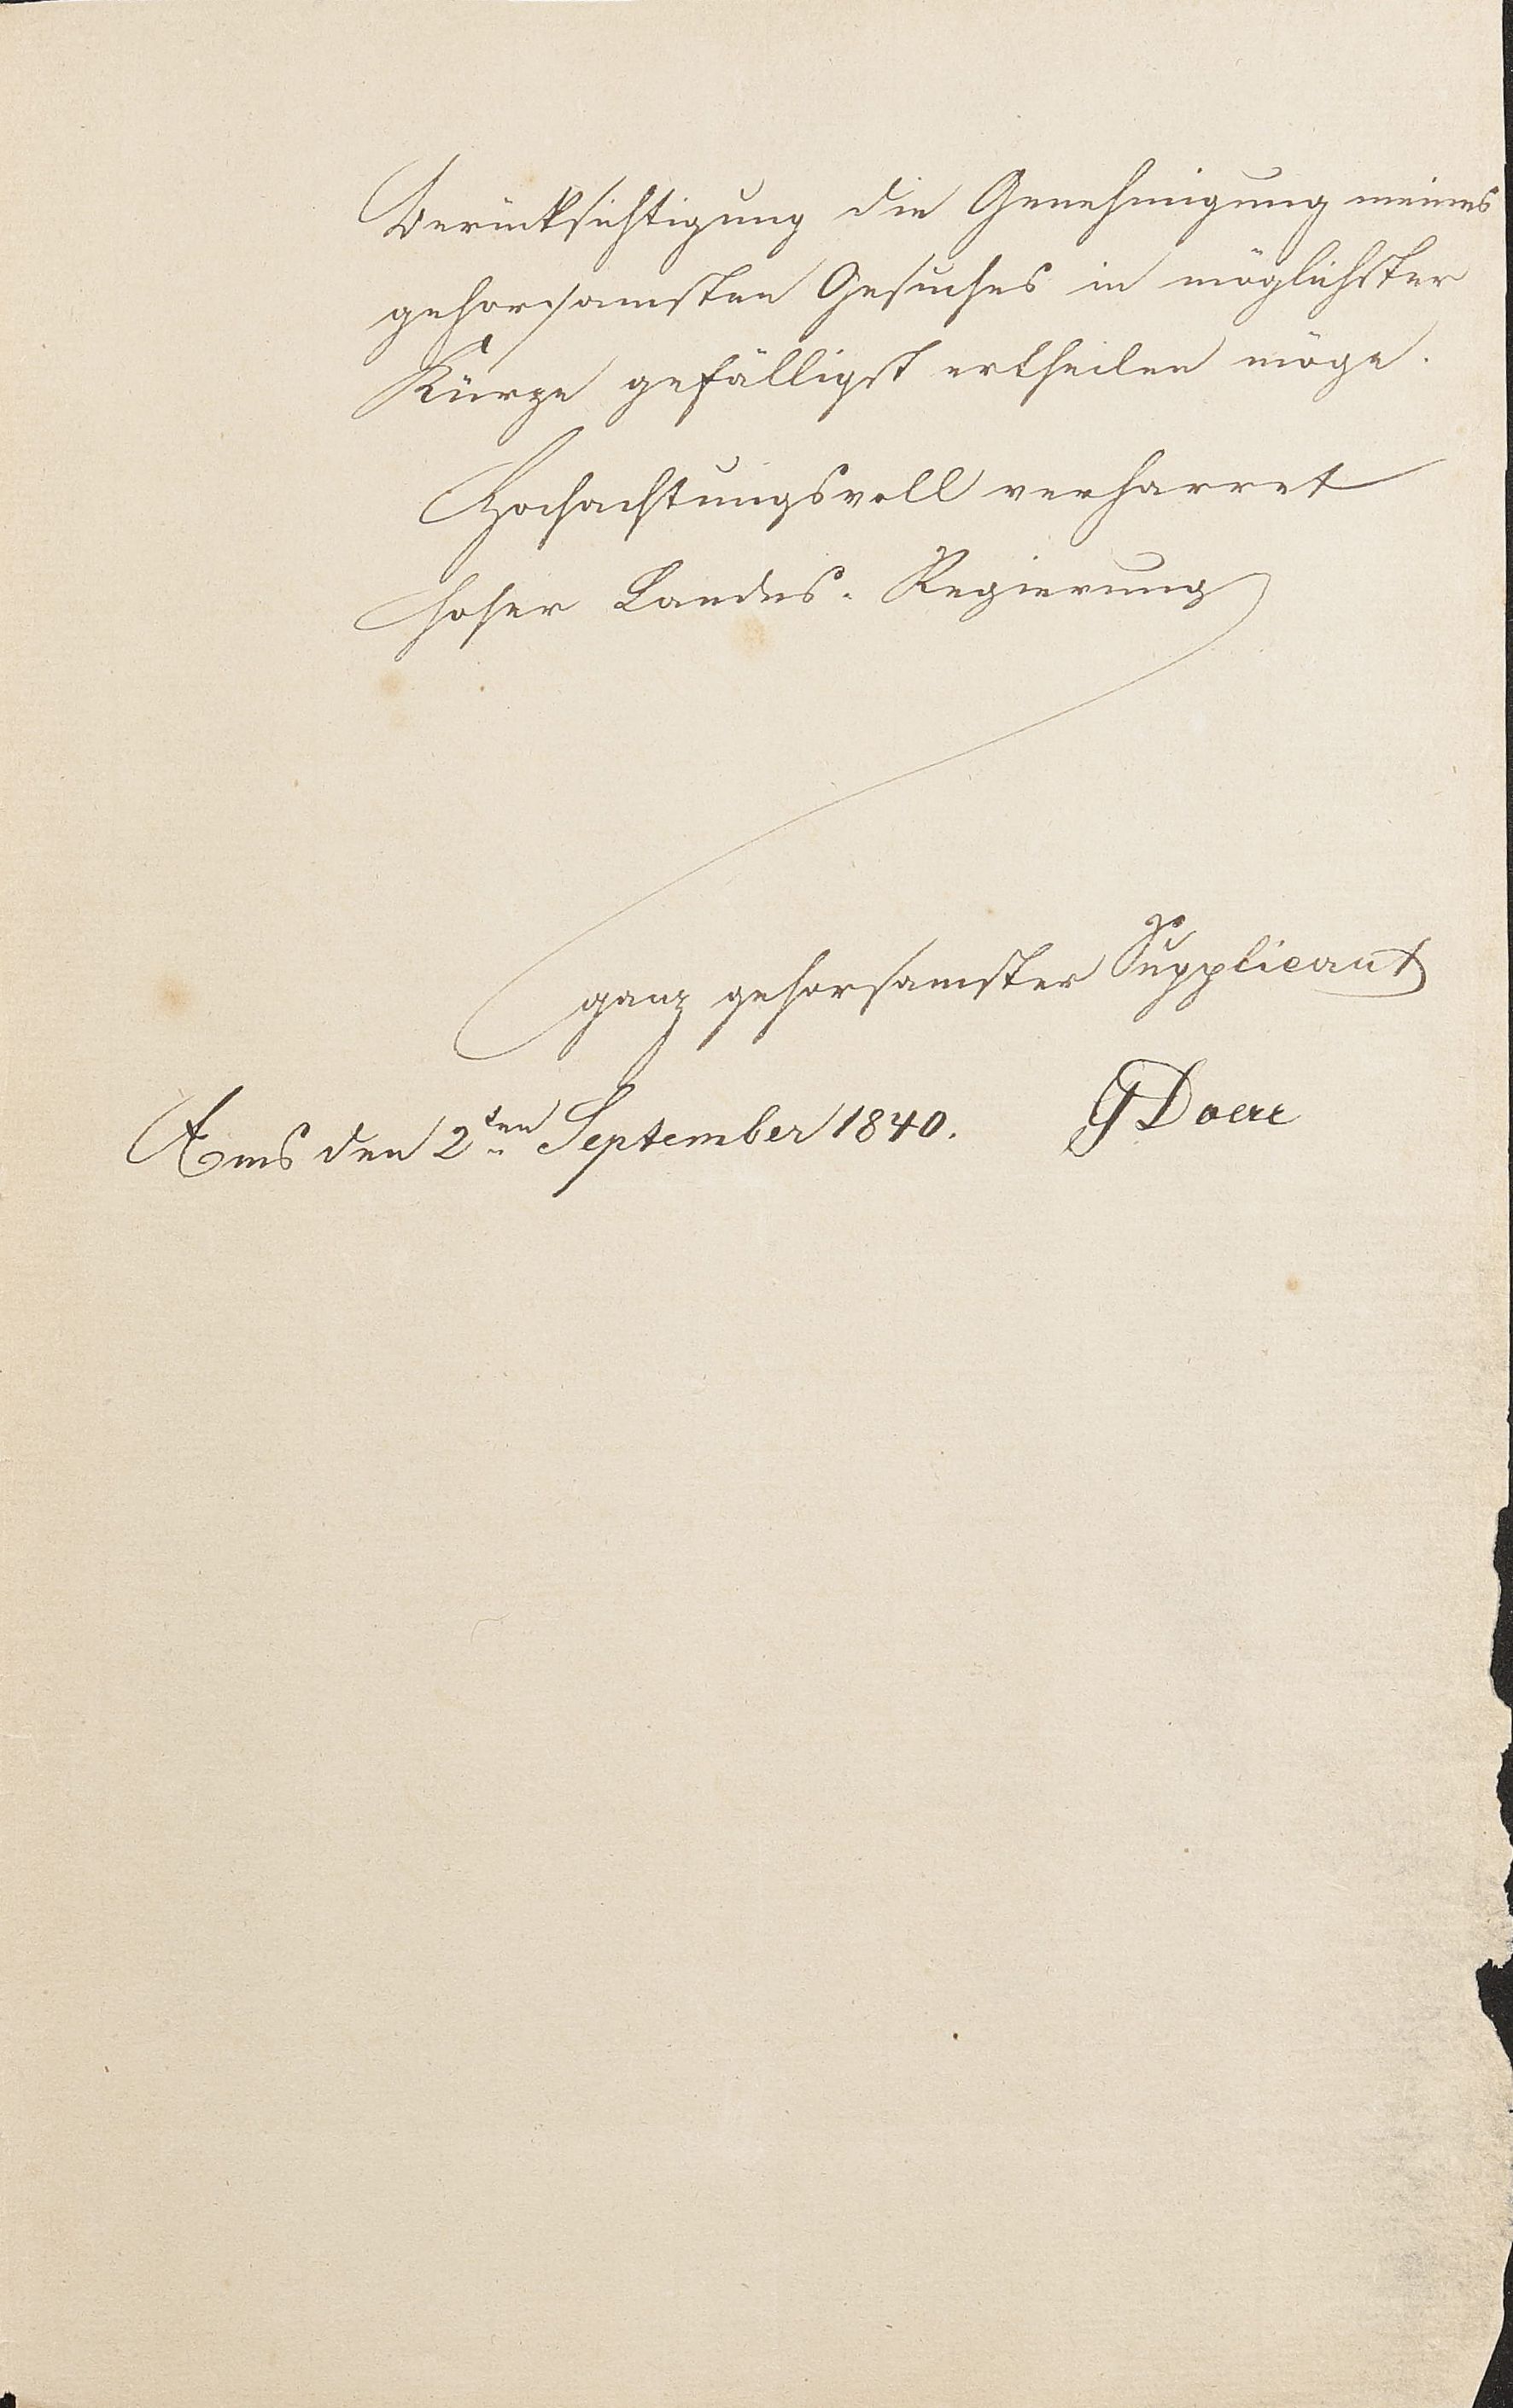 Berücksichtigung die Genehmigung meines
gehorsamsten Gesuches in möglichster
Kürze gefälligst ertheilen möge.
Hochachtungsvoll verharret
hoher Landes-Regierung
ganz gehorsamster Supplicant
Ems den 2ten September 1840. GDoerr